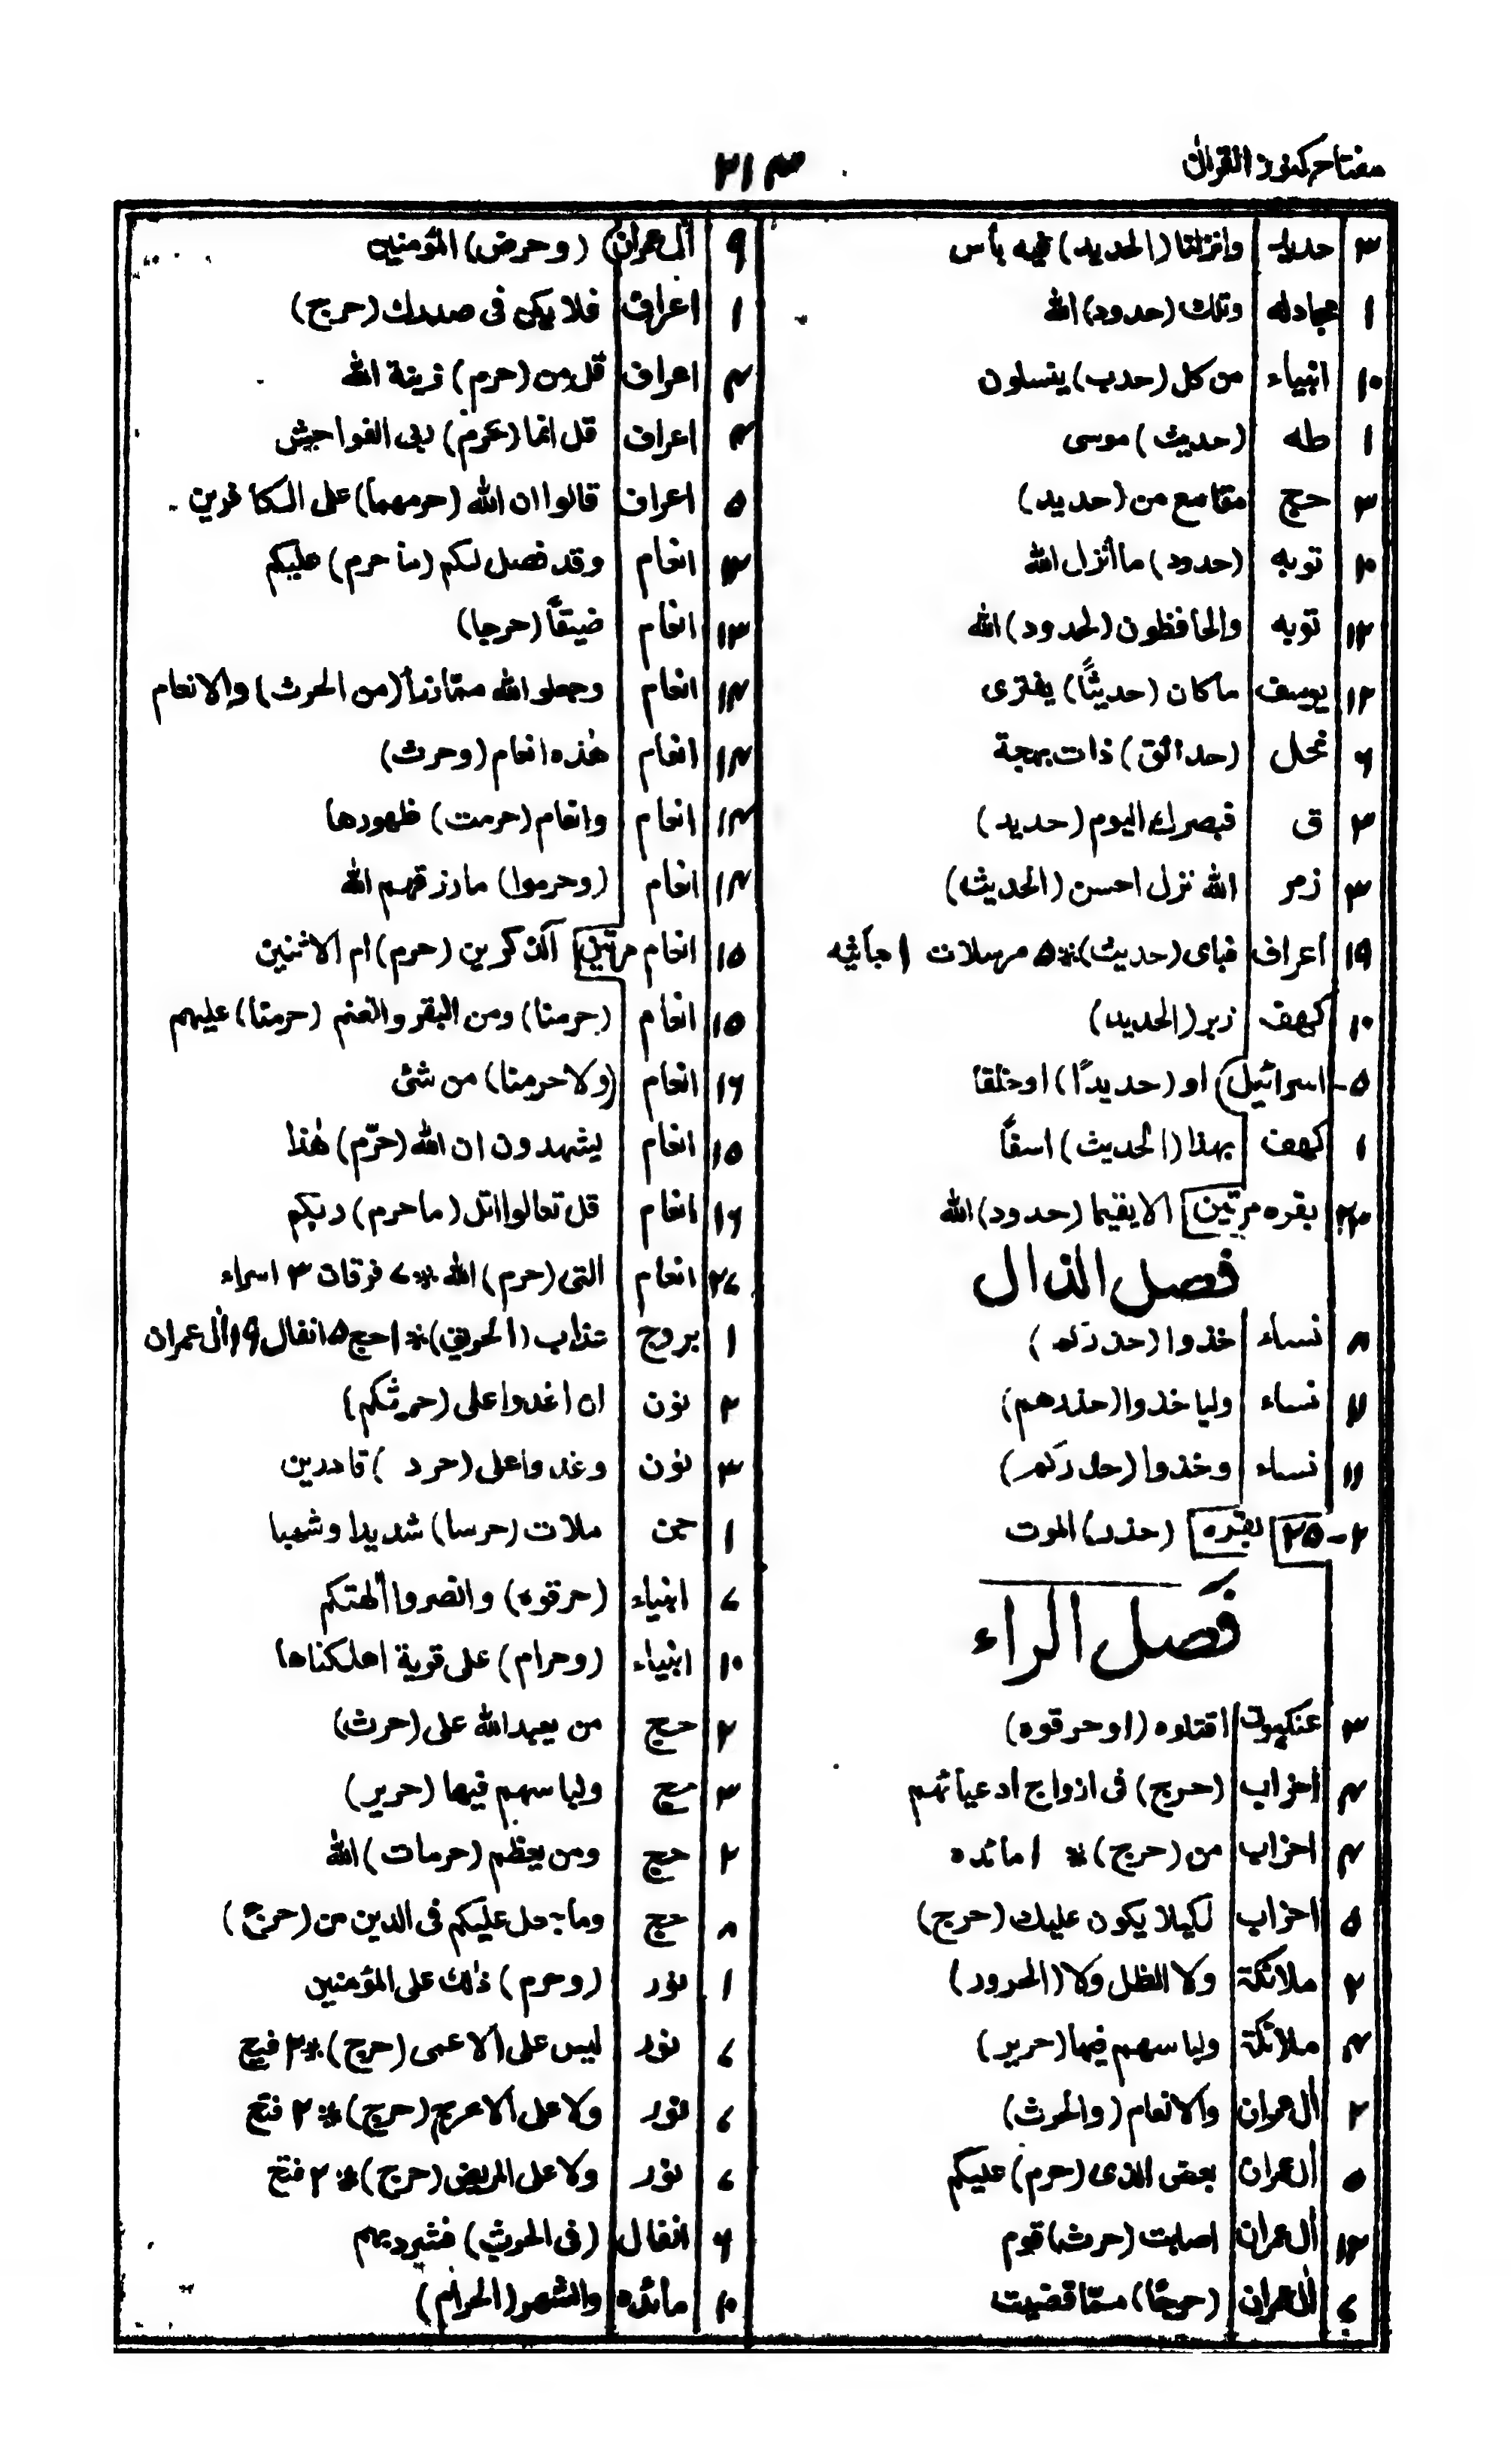 مفتاح كنوز القرآن
٢١٣
٣ حديد وانزلنا (الحديد) فيه بأس
١ مجادله وتلك (حدود) الله
١٠ انبياء من كل (حدب) ينسلون
١ طه (حديث) موسى
٣ حج مقامع من (حديد)
١٠ توبه (حدود) ما أنزل الله
١٢ توبه والحافظون (لحدود) الله
١٢ يوسف ماكان (حديثًا) يفترى
٦ نحل (حدائق) ذات بهجة
٢ ق فبصرك اليوم (حديد)
٣ زمر الله نزل احسن (الحديث)
١٩ أعراف فباى (حديث) * ٥ مرسلات ١ جاثيه
١٠ كهف زبر (الحديد)
٥ - اسرائيل او (حديدًا) اوخلقا
١ كهف بهذا (الحديث) اسفًا
بقره مرتين الا يقيما (حدود) الله
فصل الذال
٨ نساء خذوا (حذركم)
١١ نساء وليا خذوا (حذرهم)
١١ نساء وخذوا (حذركم)
٢ - ٢٥ بقره (حذر) الموت
فصل الراء
٣ عنكبوت اقتلوه (او حرقوه)
٤ احزاب (حرج) فى ازواج ادعيائهم
٤ احزاب من (حرج) * ١ مائده
٥ احزاب لكيلا يكون عليك (حرج)
٢ ملائكة ولا الظل ولا (الحرور)
٤ ملائكة ولباسهم فيها (حرير)
٢ أل عمران والانعام (والحرث)
٥ أل عمران بعض الذى (حرم) عليكم
١٢ أل عمران اصابت (حرث) قوم
أل عمران (حرجًا) ممّا قضيت
٩ أل عمران (وحرض) المؤمنين
١ اعراف فلا يكن فى صدرك (حرج)
٤ اعراف قل من (حرم) زينة الله
٤ اعراف قل انما (حرم) ربى الفواحش
٥ اعراف قالوا ان الله (حرمهما) على الكافرين
انعام وقد فصل لكم (ما حرم) عليكم
١٣ انعام ضيقًا (حرجا)
١٤ انعام وجعلوا الله ممّا ذرأ (من الحرث) والانعام
١٤ انعام هٰذه انعام (وحرث)
١٤ انعام وانعام (حرمت) ظهورها
١٤ انعام (وحرموا) مارزقهم الله
١٥ انعام مرتين آلذكرين (حرم) ام الاثنين
١٥ انعام (حرمنا) ومن البقر والغنم (حرمنا) عليهم
١٦ انعام (ولا حرمنا) من شئ
١٥ انعام يشهدون ان الله (حرّم) هٰذا
١٦ انعام قل تعالوا اتل (ما حرم) ربكم
انعام التى (حرم) الله * ٧ فرقان ٣ اسراء
١ بروج عذاب (الحريق) * ١ حج ٥ انفال ١٩ أل عمران
٢ نون ان اغدوا على (حرثكم)
٣ نون وغدوا على (حرد) قادرين
١ جن ملات (حرسا) شديدا وشهبا
٧ انبياء (حرقوه) وانصروا ألهتكم
١٠ انبياء (وحرام) على قرية اهلكناها
٢ حج من يعبد الله على (حرف)
٣ حج ولباسهم فيها (حرير)
٢ حج ومن يعظم (حرمات) الله
٨ حج وما جعل عليكم فى الدين من (حرج)
١ نور (وحرم) ذٰلك على المؤمنين
٧ نور ليس على ألاعمى (حرج) * ٢ فتح
٧ نور ولا على ألاعرج (حرج) * ٢ فتح
٧ نور ولا على المريض (حرج) * ٢ فتح
٦ انفال (فى الحرب) فشرد بهم
١٠ مائده والشهر (الحرام)